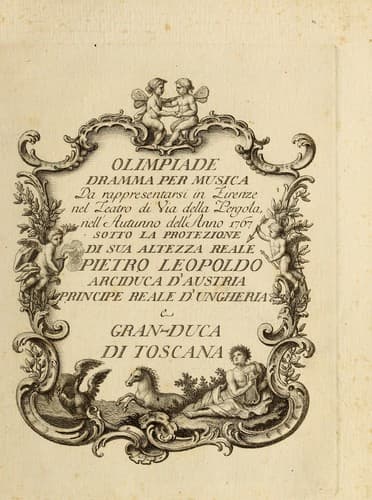 OLIMPIADE
DRAMMA PER MUSICA
Da rappresentarsi in Firenze
nel Teatro di Via della Pergola,
nell' Autunno dell' Anno 1767
SOTTO LA PROTEZIONE
DI SUA ALTEZZA REALE
PIETRO LEOPOLDO
ARCIDUCA D'AUSTRIA
PRINCIPE REALE D'UNGHERIA
e
GRAN-DUCA
DI TOSCANA